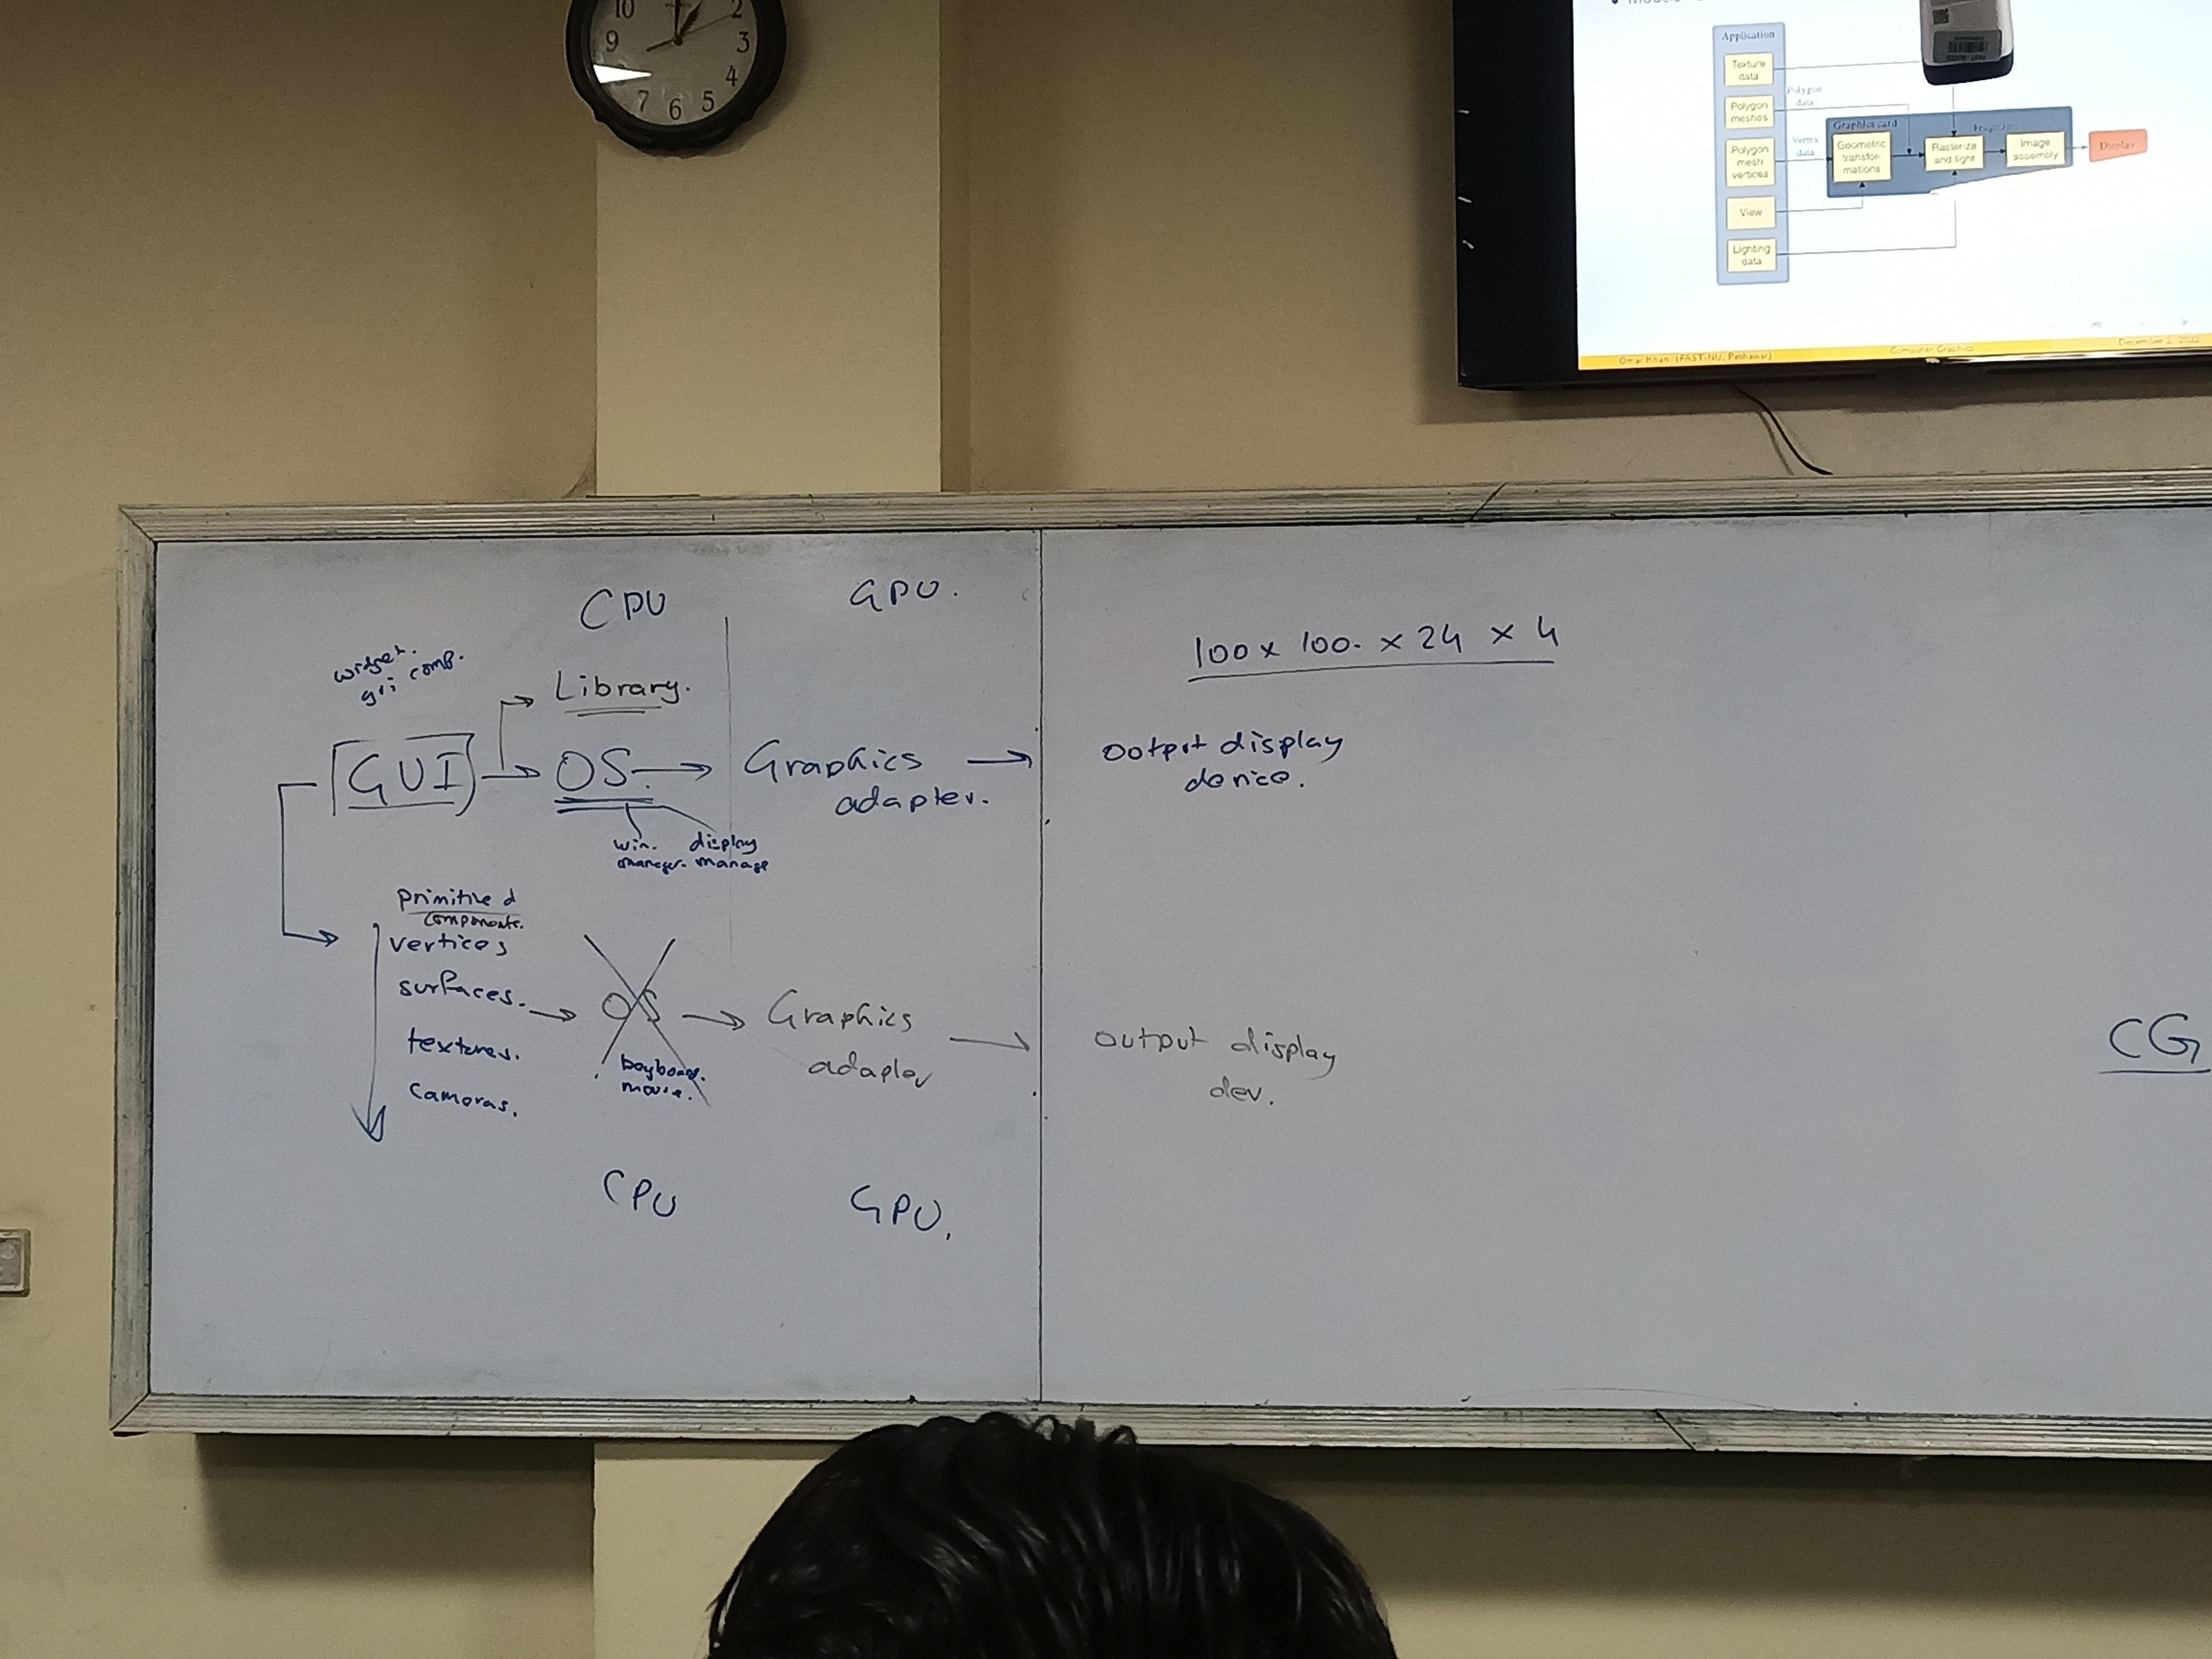 10
2
9
3
4
7
6
5
Application
Texture
data
Polygon
meshes
Polygon
mesh
vertices
View
Lighting
data
Polygon
data
Vertex
data
Graphics card
Geometric
transfor-
mations
Rasterize
and light
Image
assembly
Display
Omar Khan (FAST-NU, Peshawar)
Computer Graphics
December 2, 2022
CPU
GPU.
widget.
gui comp.
Library.
GUI
OS.
Graphics
adapter.
win. display
manager. manage
100 x 100. x 24 x 4
Output display
device.
primitive d
components.
vertices
surfaces.
textures.
Cameras.
OS
keyboard.
mouse.
Graphics
adapter
output display
dev.
CPU
GPU.
CG